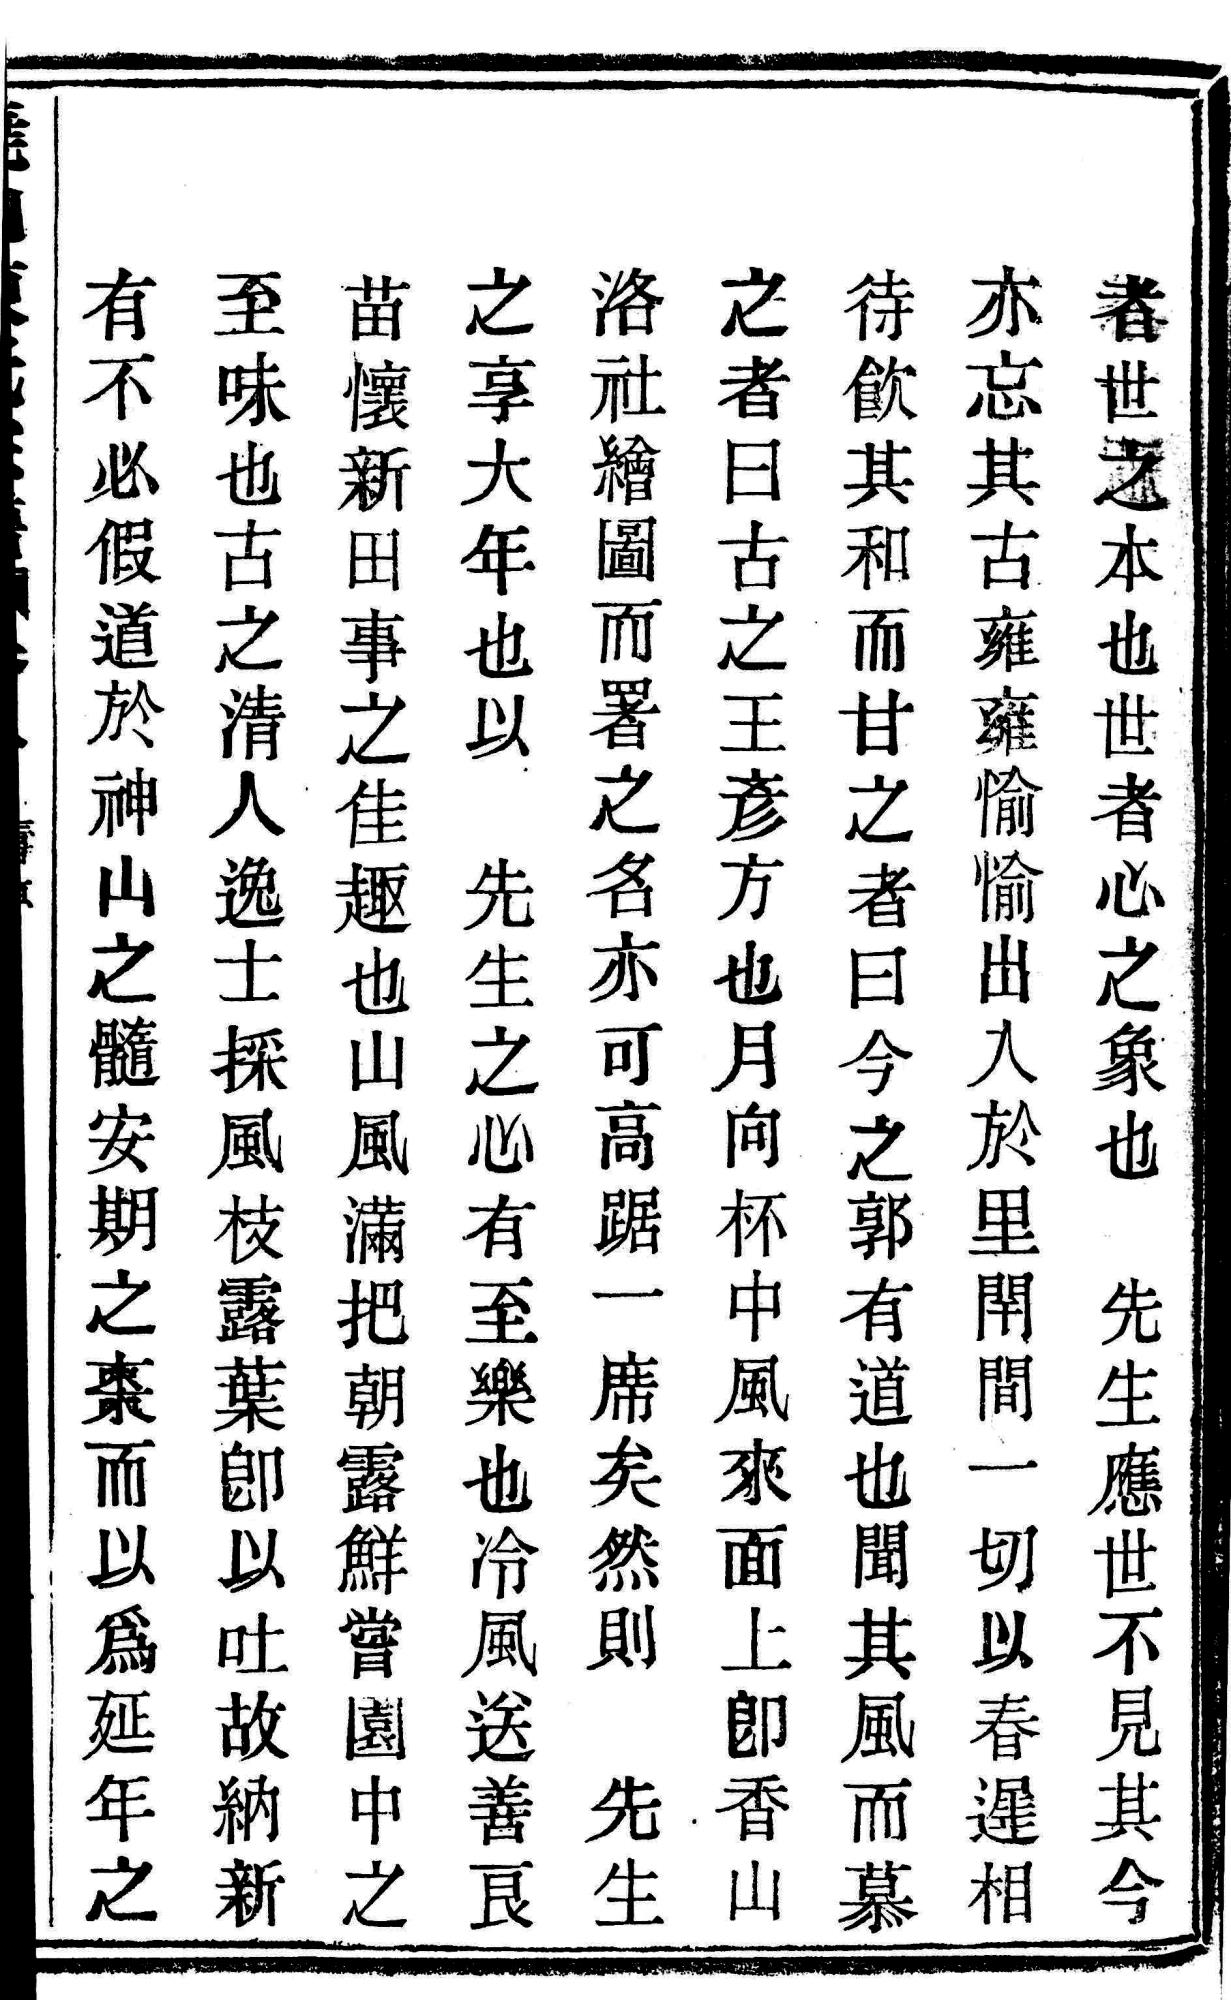 者世之本也世者心之象也　先生應世不見其今
亦忘其古雍雍愉愉出入於里閈間一切以春遲相
待飲其和而甘之者曰今之郭有道也聞其風而慕
之者曰古之王彥方也月向杯中風來面上卽香山
洛社繪圖而署之名亦可高踞一席矣然則　先生
之享大年也以　先生之心有至樂也冷風送善良
苗懷新田事之佳趣也山風滿把朝露鮮嘗園中之
至味也古之清人逸士採風枝露葉卽以吐故納新
有不必假道於神山之髓安期之棗而以爲延年之